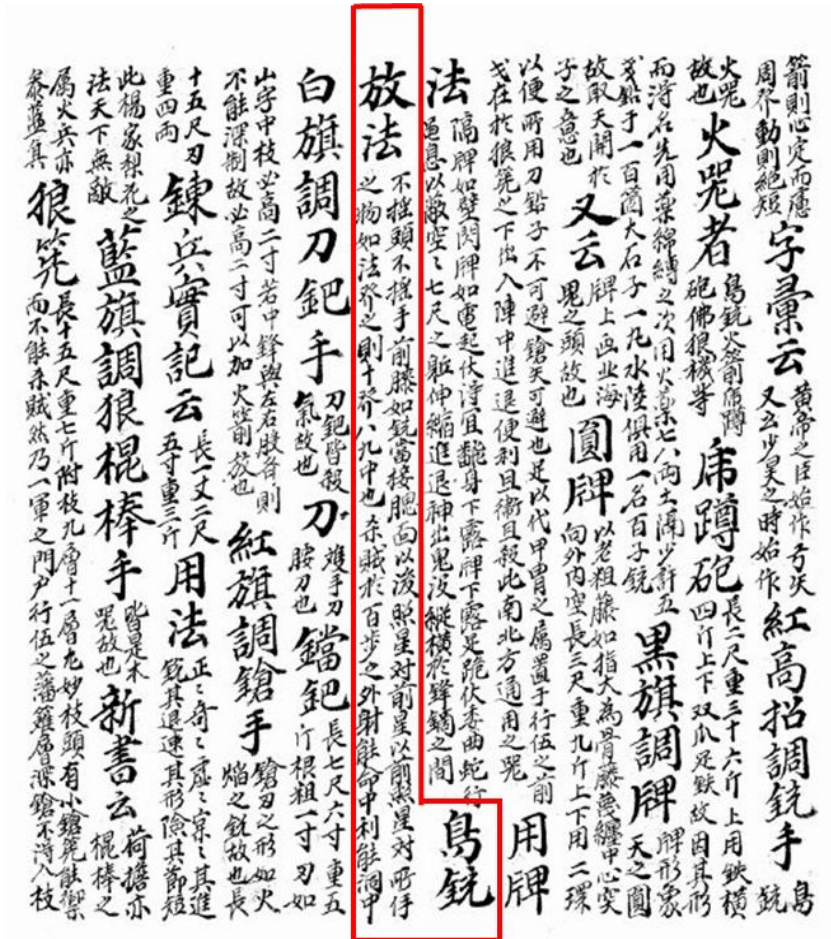 箭則心定而慮
周发動則絶短
字彙云
黃帝之臣始作弓矢
又云少昊之時始作
紅高招調銃手
鳥
銃
火器
故也
火器者
鳥銃火箭虎蹲
砲佛狼機等
虎蹲砲
長二尺重三十六斤上用鉄横
四汀上下双爪是鉄故因其形
而淂名先用藥綿縛之次用火藥七八兩土隔少許五
戈鉛子一百箇大石子一丸水陸俱用一名百子銃
黑旗調牌
牌形象
天之圓
故取天開於
子之意也
又云
牌上画北海
鬼之頭故也
圓牌
以老粗藤如指大為骨藤蔑纏中心突
向外内空長三尺重九斤上下用二環
以便所用刀鉛子不可避鎗矢可避也足以代甲冑之属置于行伍之前
戈在於狼筅之下出入陣中進退便利且衛且殺此南北方通用之器
用牌
法
隔牌如壁閃牌如電起伏淂宜身下露牌下露足跪伏委曲蛇行
息以敵空々七尺之軀伸縮進退神出鬼没縱橫於鋒鏑之間
鳥銃
放法
不搖頭不搖手前膝如銃當接腮面以後照星對前星以前照星對所佇
之物如法发之則十发八九中也杀賊於百步之外射能命中利能洞中
白旗調刀鈀手
刀鈀皆殺
氣故也
刀
雙手刀
腰刀也
鐺鈀
長七尺六寸重五
斤根粗一寸刃如
山字中枝必高二寸若中鋒與左右股各則
不能深制故必高二寸可以加火箭放也
紅旗調鎗手
鎗刃之形如火
焔之銳故也長
十五尺刃
重四兩
鍊兵實記云
長一丈二尺
五寸重三斤
用法
正々奇々虛々寀々其進
銳其退速其形險其節短
此楊家梨花之
法天下無敵
藍旗調狼棍棒手
皆是木
器故也
新書云
荷擔亦
棍棒之
属火兵亦
叅藍真
狼筅
長十五尺重七斤附枝九層十一層尤妙枝頭有小鎗筅能禦
而不能杀賊然乃一軍之門户行伍之藩籬層深鎗不淂入枝